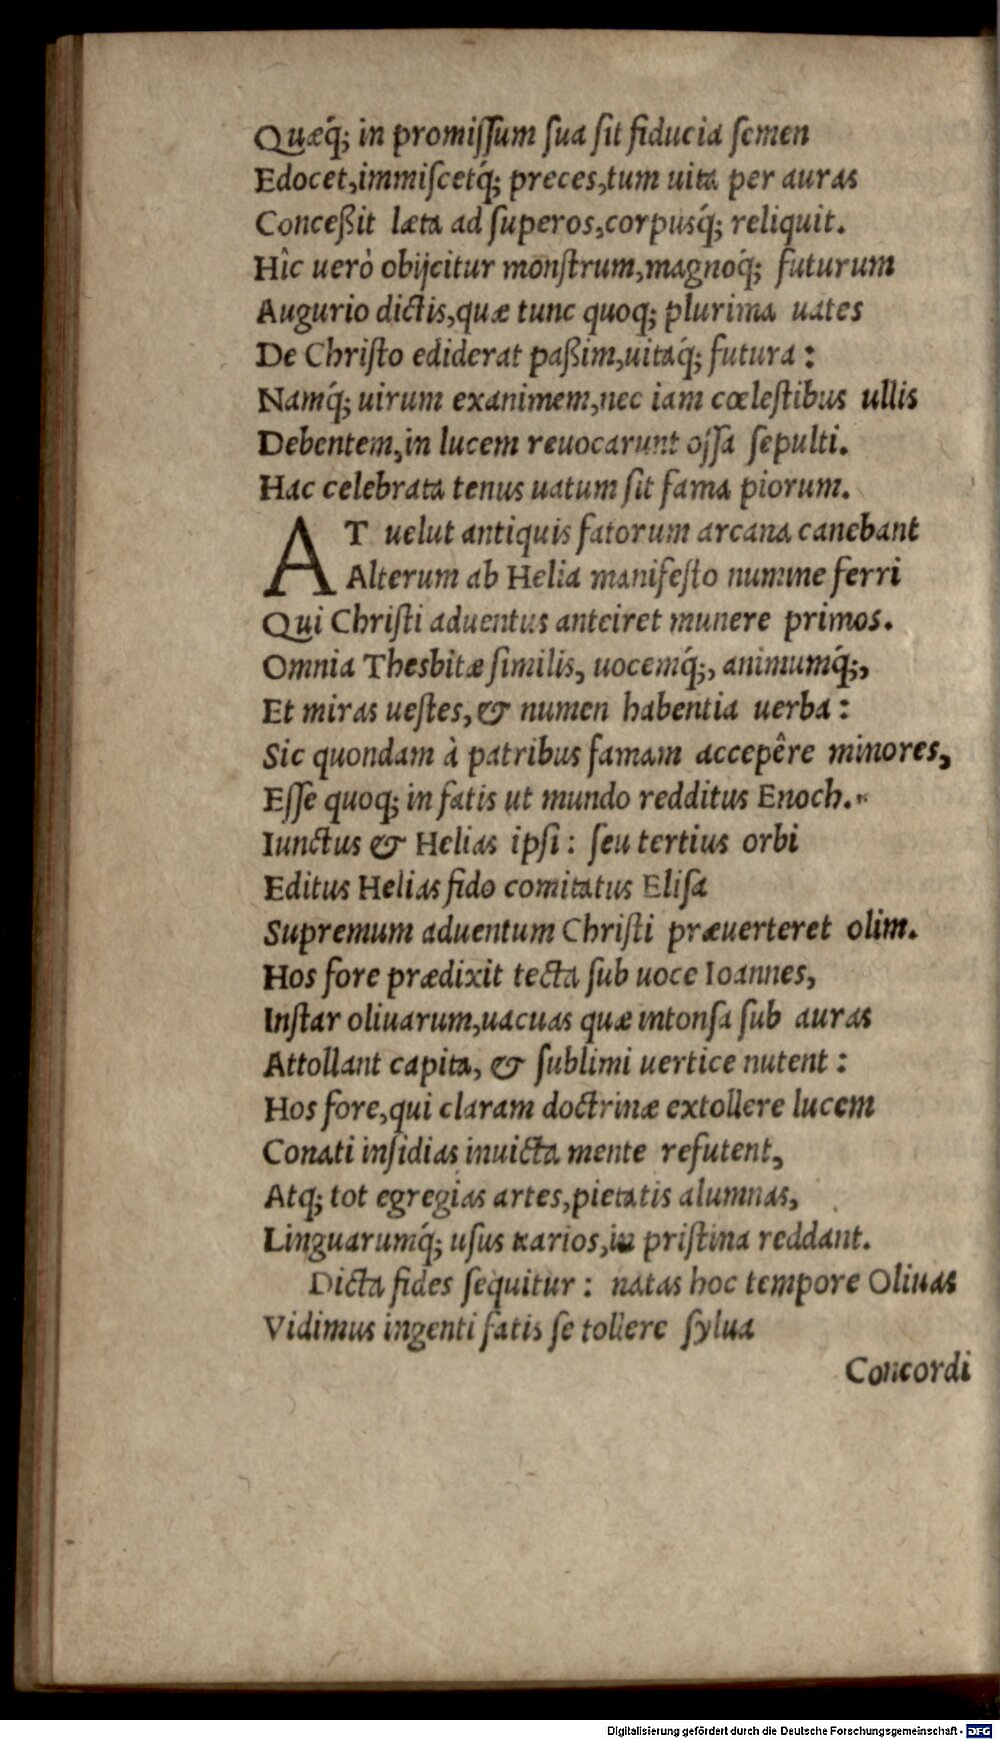 Quæq́; in promiſſum ſua ſit fiducia ſemen
Edocet,immiſcetq́; preces,tum uita per auras
Conceßit læta ad ſuperos,corpusq́; reliquit.
Hîc uerò obijcitur monſtrum,magnoq́; futurum
Augurio dictis,quæ tunc quoq; plurima uates
De Chriſto ediderat paßim,uitaq́; futura :
Namq́; uirum exanimem,nec iam cœleſtibus ullis
Debentem,in lucem reuocarunt oſſa ſepulti.
Hac celebrata tenus uatum ſit fama piorum.
AT uelut antiquis fatorum arcana canebant
Alterum ab Helia manifeſto numine ferri
Qui Chriſti aduentus anteiret munere primos.
Omnia Thesbitæ ſimilis, uocemq́;, animumq́;,
Et miras ueſtes, & numen habentia uerba :
Sic quondam à patribus famam accepêre minores,
Eſſe quoq; in fatis ut mundo redditus Enoch.
Iunctus & Helias ipſi : ſeu tertius orbi
Editus Helias fido comitatus Eliſa
Supremum aduentum Chriſti præuerteret olim.
Hos fore prædixit tecta ſub uoce Ioannes,
Inſtar oliuarum,uacuas quæ intonſa ſub auras
Attollant capita, & ſublimi uertice nutent :
Hos fore,qui claram doctrinæ extollere lucem
Conati inſidias inuicta mente refutent,
Atq; tot egregias artes,pietatis alumnas,
Linguarumq́; uſus uarios,in priſtina reddant.
Dicta fides ſequitur : natas hoc tempore Oliuas
Vidimus ingenti fatis ſe tollere ſylua
Concordi
Digitalisierung gefördert durch die Deutsche Forschungsgemeinschaft - DFG